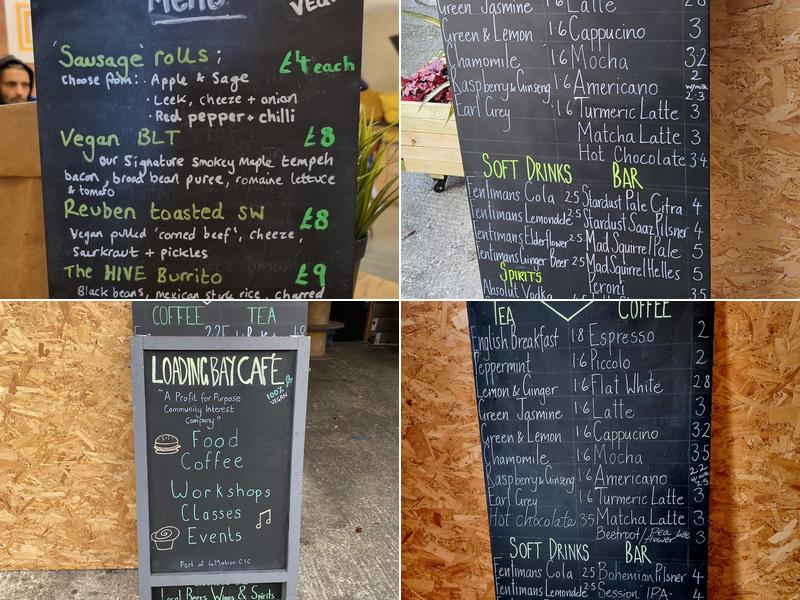 Menu
'Sausage' rolls ; £4 each
Choose from: · Apple & Sage
· Leek, cheese + onion
· Red pepper + chilli
Vegan BLT £8
Our Signature smokey Maple tempeh
bacon, broad bean puree, romaine lettuce
& tomato
Reuben toasted sw £8
Vegan pulled 'corned beef', cheese,
Saurkraut + pickles
The HIVE Burrito £9
Black beans, mexican style rice, charred
Green Jasmine 1·6 Latte 2·8
Green & Lemon 1·6 Cappucino 3
Chamomile 1·6 Mocha 3·2
Raspberry & Ginseng 1·6 Americano 2
2·3
Earl Grey 1·6 Turmeric Latte 3
Matcha Latte 3
Hot Chocolate 3·4
SOFT DRINKS BAR
Fentimans Cola 2·5 Stardust Pale Citra 4
Fentimans Lemonade 2·5 Stardust Saaz Pilsner 4
Fentimans Elderflower 2·5 Mad Squirrel Pale 5
Fentimans Ginger Beer 2·5 Mad Squirrel Helles 5
SPIRITS Peroni
Absolut Vodka
COFFEE TEA
LOADING BAY CAFÉ
100% VEGAN
"A Profit for Purpose
Community Interest
Company"
Food
Coffee
Workshops
Classes
Events
Part of 4Motion C.I.C
Local Beers Wines & Spirits
TEA COFFEE
English Breakfast 1·8 Espresso 2
Peppermint 1·6 Piccolo 2
Lemon & Ginger 1·6 Flat White 2·8
Green Jasmine 1·6 Latte 3
Green & Lemon 1·6 Cappucino 3·2
Chamomile 1·6 Mocha 3·5
Raspberry & Ginseng 1·6 Americano 2·2
2·5
Earl Grey 1·6 Turmeric Latte 3
Hot chocolate 3·5 Matcha Latte 3
Beetroot/Pea flower latte 3
SOFT DRINKS BAR
Fentimans Cola 2·5 Bohemian Pilsner 4
Fentimans Lemonade 2·5 Session IPA 4